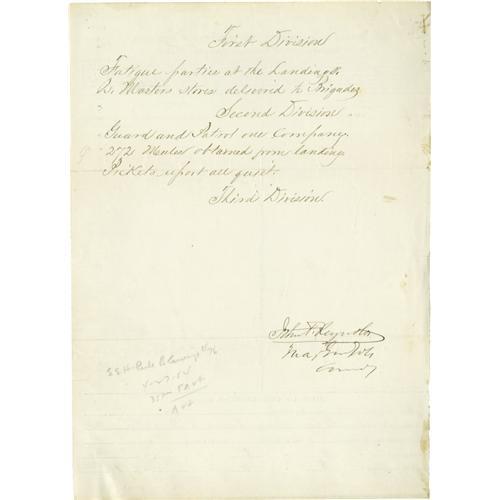 First Division
Fatigue parties at the Landing
Qr Masters stores delivered to Brigades
Second Division
Guard and Patrol one Company.
272 Mules obtained from landing
Pickets report all quiet.
Third Division
John F. Reynolds
Maj Gen Vols
Comdg